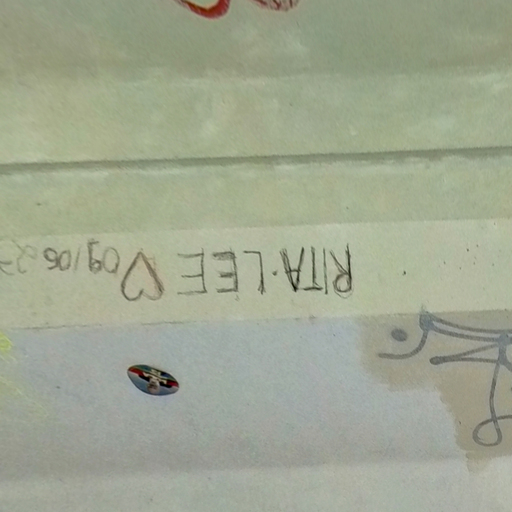 RITA LEE ♡ 09/06 23